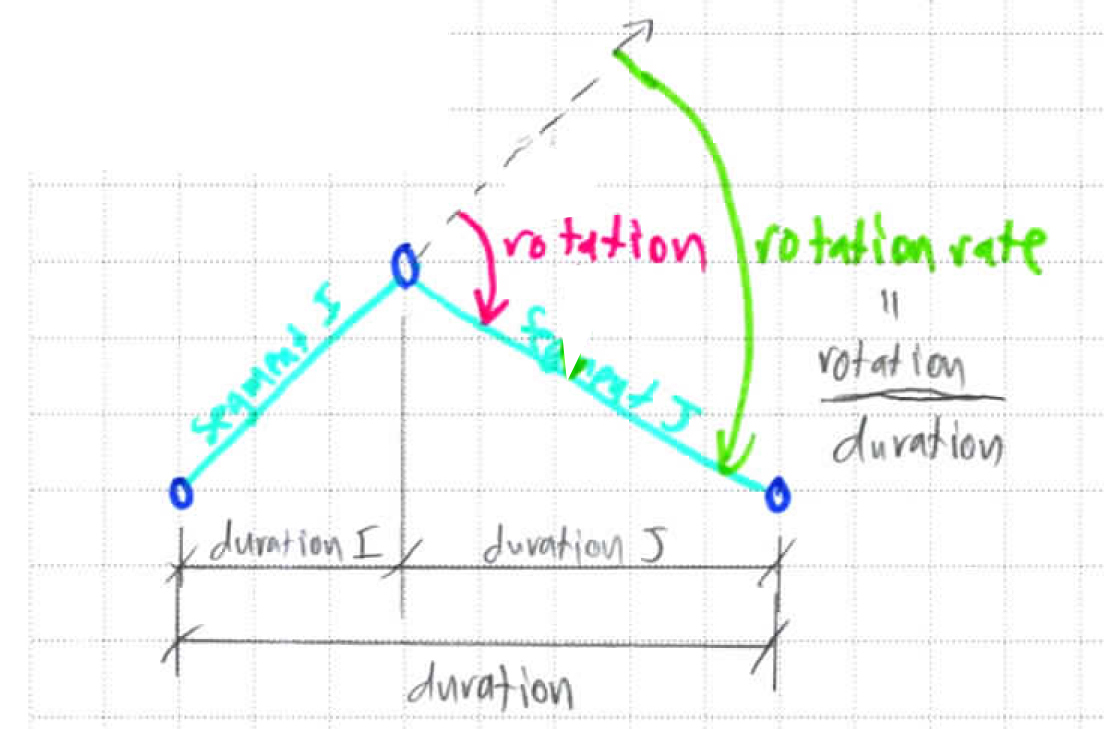 rotation
rotation rate
=
rotation
duration
segment I
segment J
duration I
duration J
duration